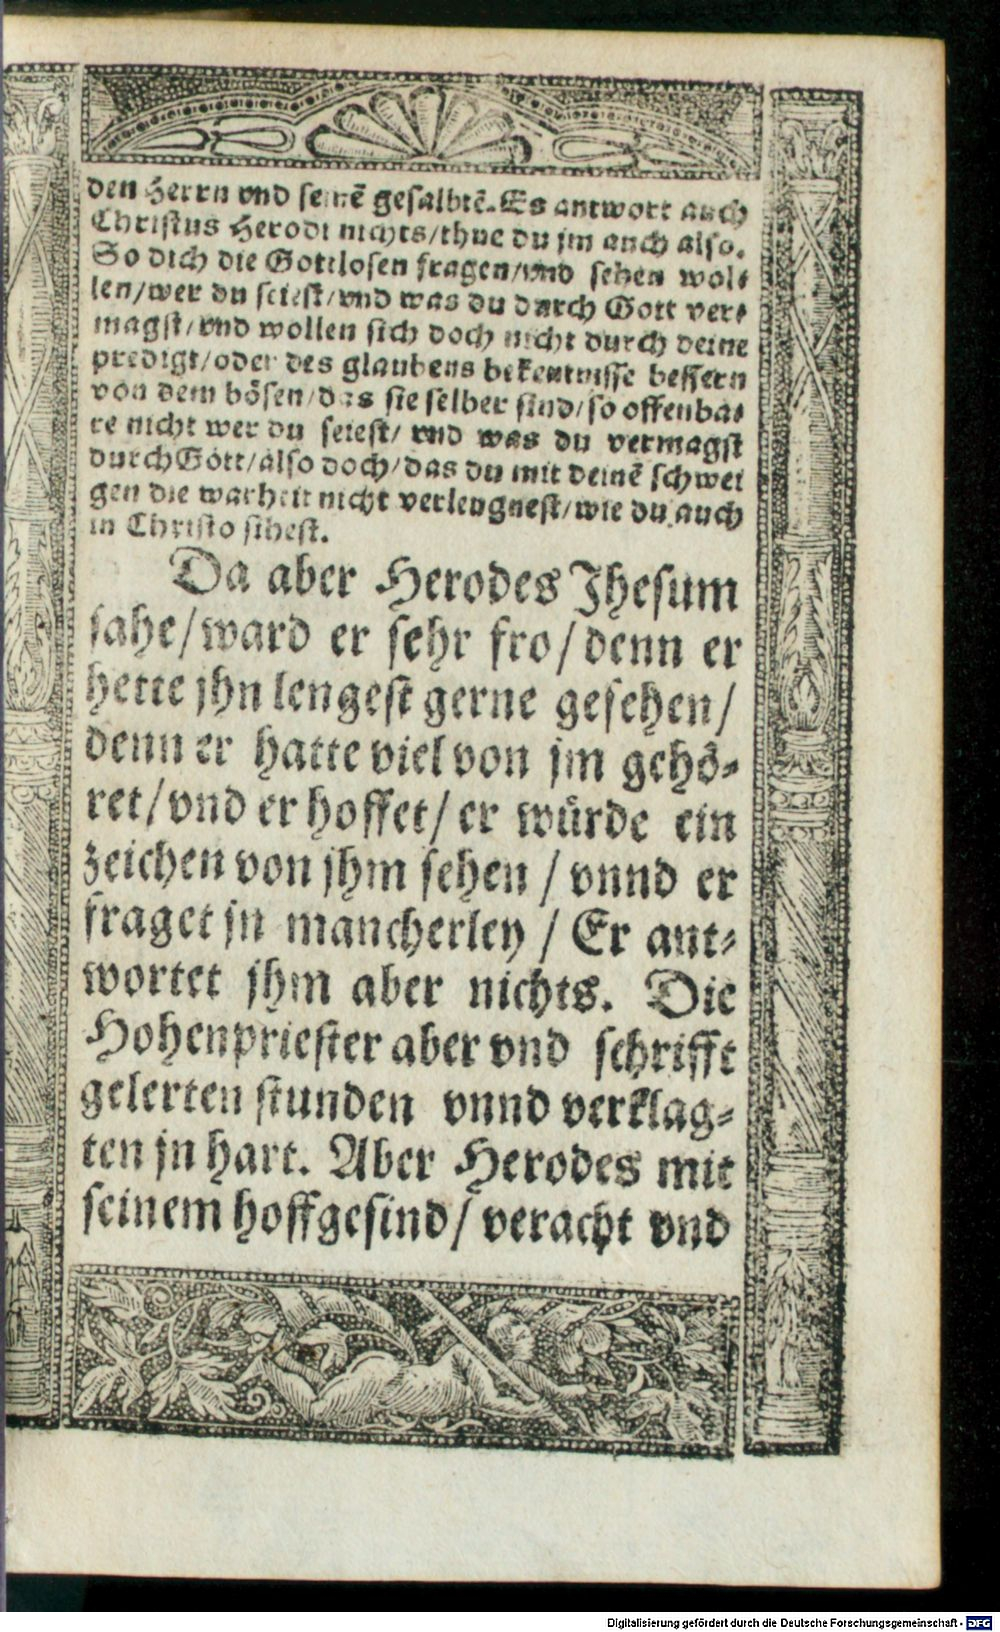 den Herrn vnd seinẽ gesalbtẽ. Es antwort auch
Christus Herodi nichts/thue du jm auch also.
So dich die Gottlosen fragen/vnd sehen wol⸗
len/wer du seiest/vnd was du durch Gott ver⸗
magst/vnd wollen sich doch nicht durch deine
predigt/oder des glaubens bekentnisse bessern
von dem bösen/das sie selber sind/so offenba⸗
re nicht wer du seiest/ vnd was du vermagst
durch Gott/also doch/das du mit deinẽ schwei
gen die warheit nicht verleugnest/wie du auch
in Christo sihest.
Da aber Herodes Jhesum
sahe/ward er sehr fro/denn er
hette jhn lengest gerne gesehen/
denn er hatte viel von jm gehö⸗
ret/vnd er hoffet/er würde ein
zeichen von jhm sehen / vnnd er
fraget jn mancherley / Er ant⸗
wortet jhm aber nichts. Die
Hohenpriester aber vnd schrifft
gelerten stunden vnnd verklag⸗
ten jn hart. Aber Herodes mit
seinem hoffgesind/ veracht vnd
Digitalisierung gefördert durch die Deutsche Forschungsgemeinschaft - DFG